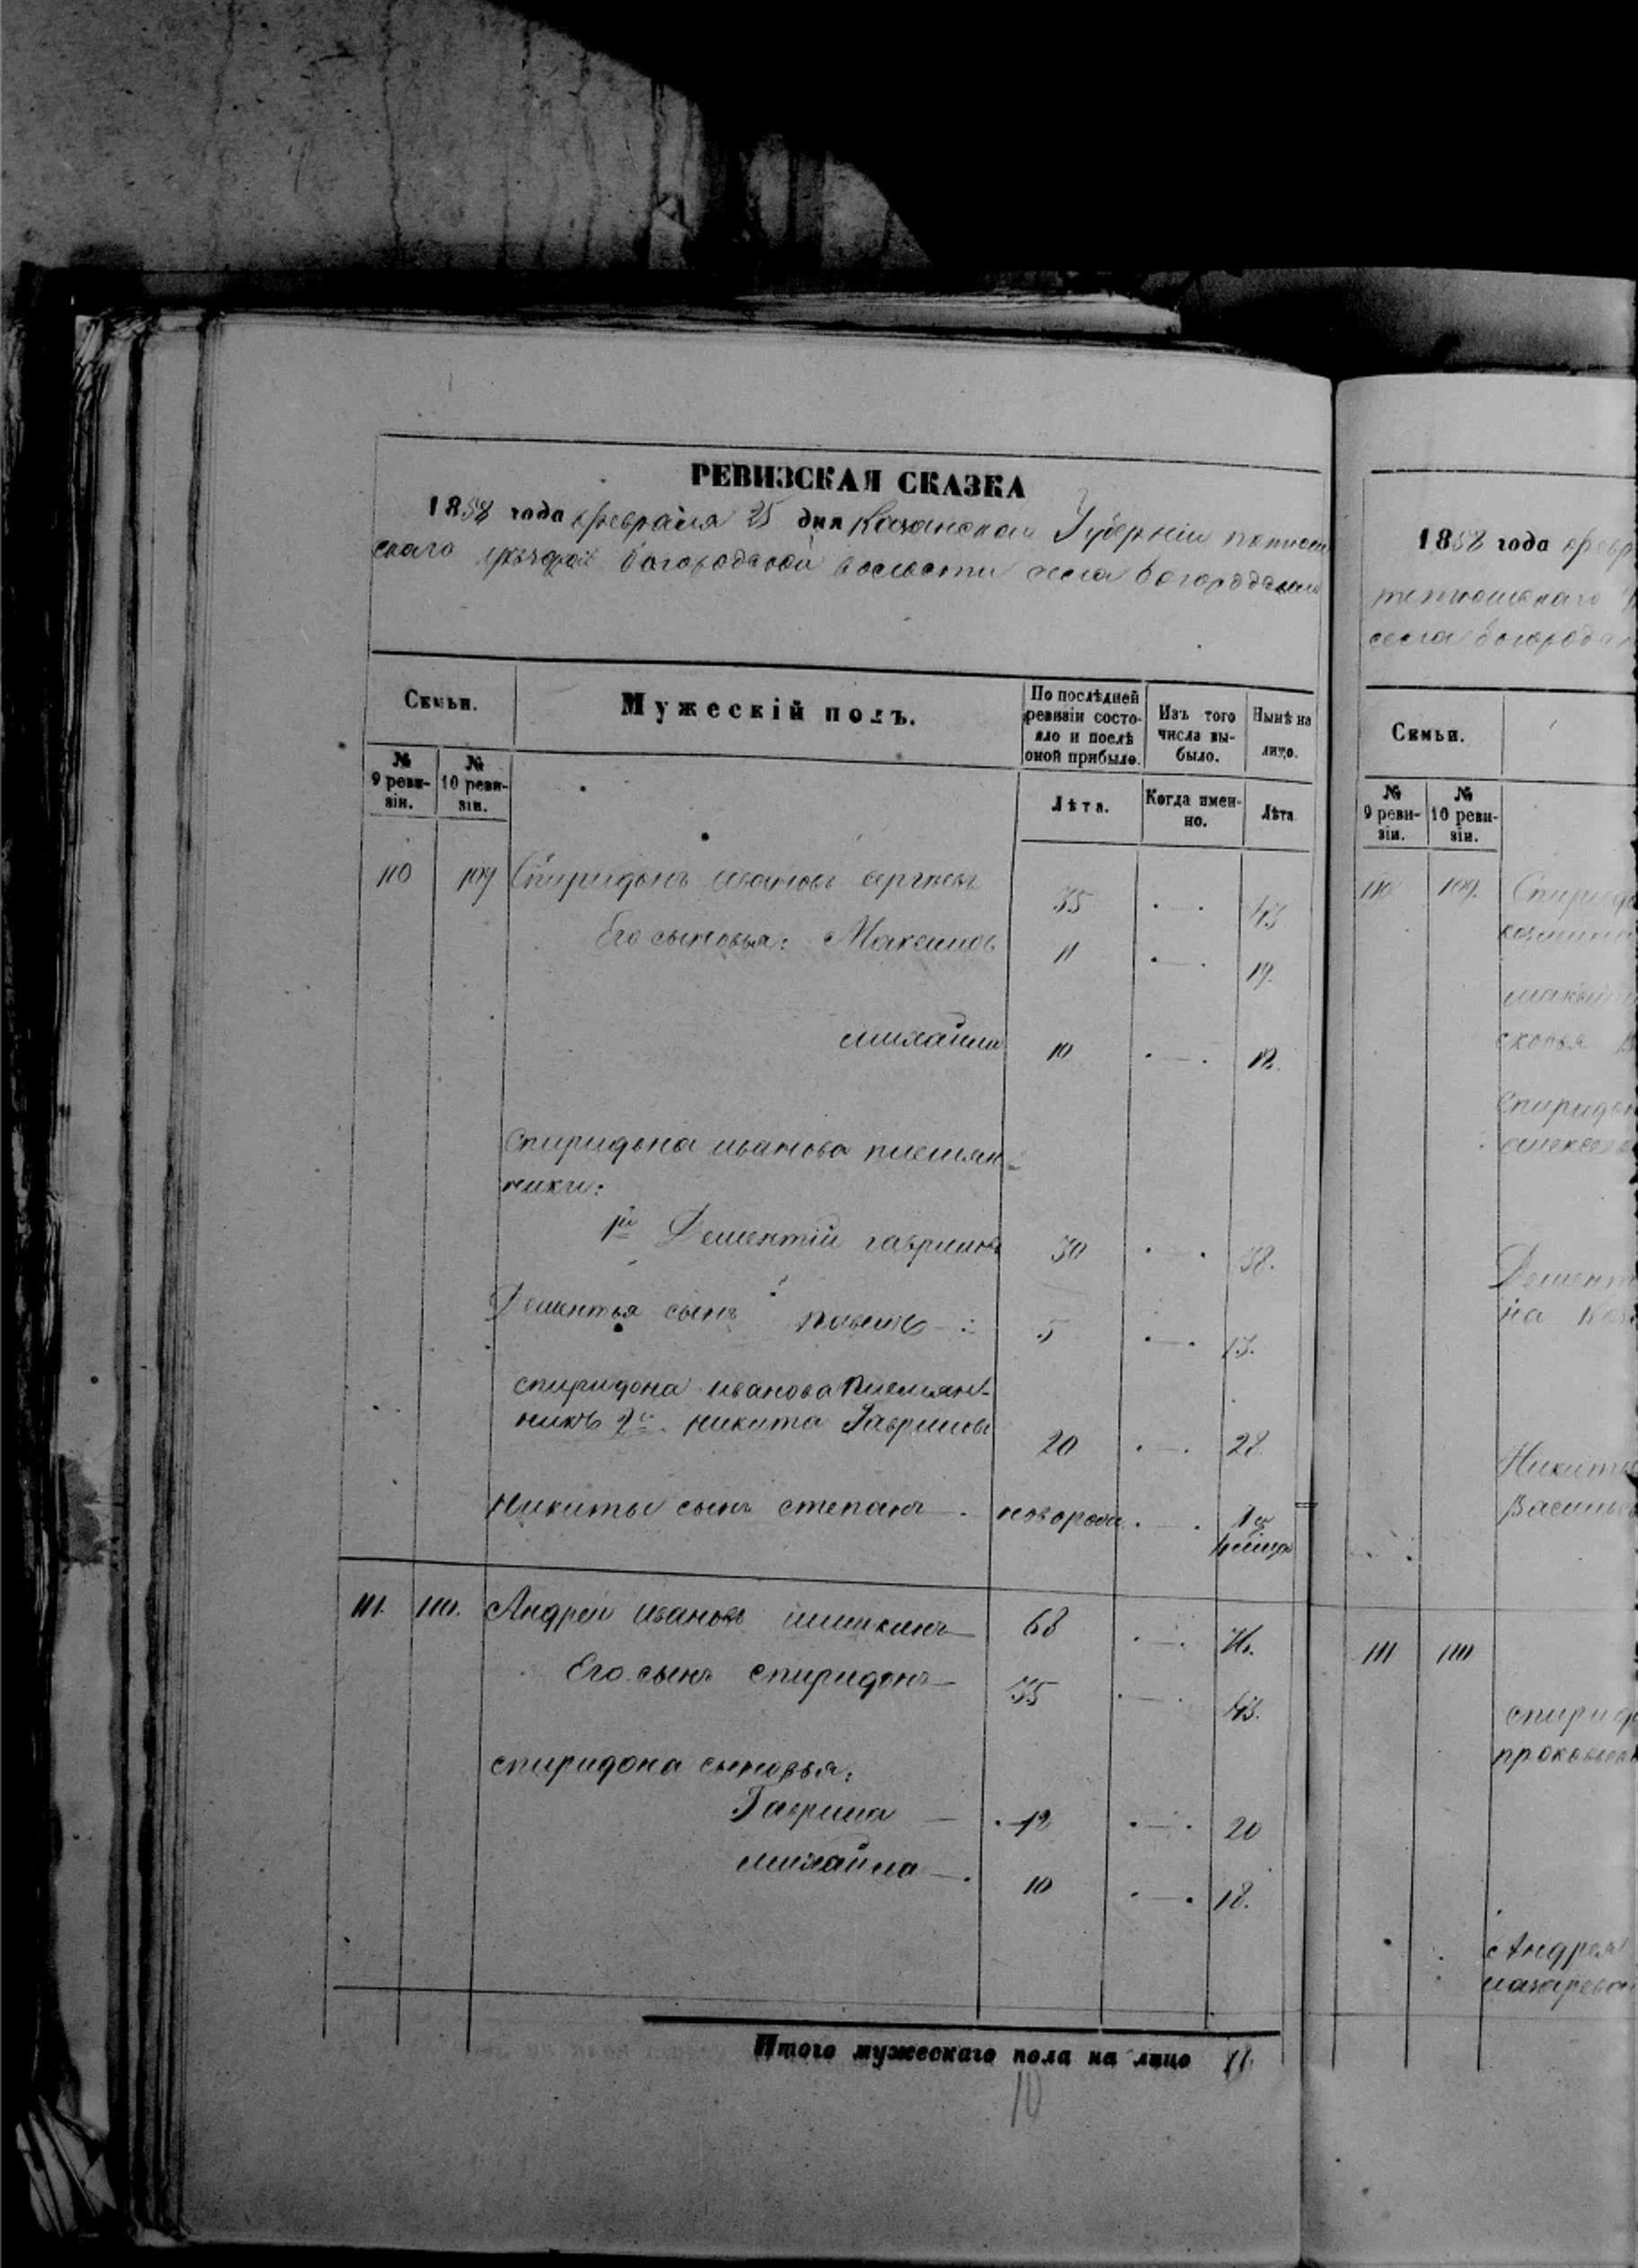 РЕВИЗСКАЯ СКАЗКА
1858 года февраля 25 дня Казанской Губерніи тетюш
скаго уезда богородской волости села богородскаго
Семьи.
Мужескій полъ.
По послѣдней ревизіи состояло и послѣ оной прибыло.
Изъ того числа выбыло.
Нынѣ на лицо.
№ 9 ревизіи.
№ 10 ревизіи.
Лѣта.
Когда именно.
Лѣта
110 109 Спиридонъ ивановъ сергѣевъ 35 43
Его сыновья: Максимъ 11 19.
михайла 10 12.
Спиридона иванова племян
ники:
1й Дементій гавриловъ 30 38.
Дементья сынъ павелъ 5 13.
спиридона иванова племян
никъ 2й никита Гавриловъ 20 28
никиты сынъ степанъ новорож. 1 и
111. 110. Андрей ивановъ шишкинъ 68 76.
Его сынъ спиридонъ 35 43.
спиридона сыновья:
Гаврила 12 20
михайла 10 18.
Итого мужескаго пола на лицо 11
10
1858 года февр
тетюшскаго
села богородс
Семьи.
№ 9 ревизіи.
№ 10 ревизіи.
110 109. Спиридо
Спиридон
алексее
Демент
на
Никиты
Василье
111 110
спирид
Андрея